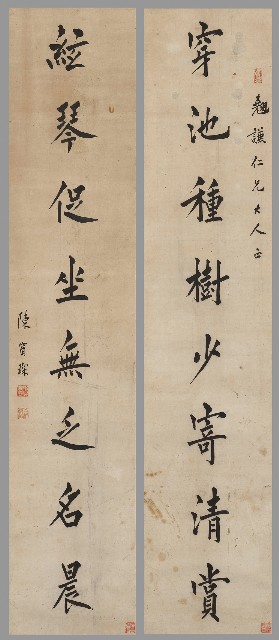 謙仁兄大人正
穿池種樹少寄清賞
絃琴促坐無乏名晨
陳寶琛